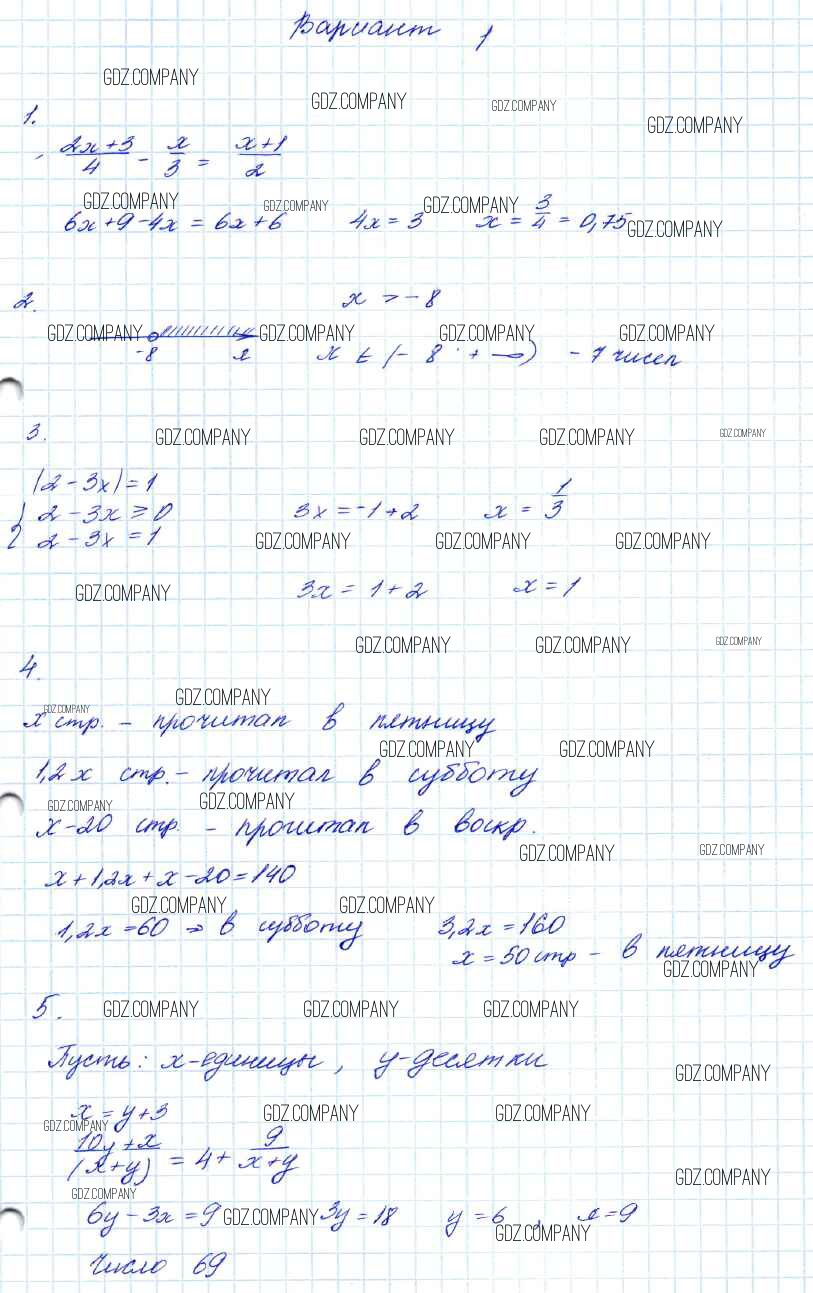 Вариант 1
GDZ.COMPANY
GDZ.COMPANY GDZ.COMPANY
GDZ.COMPANY
1.
(2x+3)/4 - x/3 = (x+1)/2
GDZ.COMPANY GDZ.COMPANY GDZ.COMPANY
6x+9-4x = 6x+6 4x = 3 x = 3/4 = 0,75 GDZ.COMPANY
2. x > -8
GDZ.COMPANY GDZ.COMPANY GDZ.COMPANY GDZ.COMPANY
-8 x x ∈ (-8; +∞) - 7 чисел
3. GDZ.COMPANY GDZ.COMPANY GDZ.COMPANY GDZ.COMPANY
|2-3x| = 1
2-3x ≥ 0 3x = -1+2 x = 1/3
2-3x = 1 GDZ.COMPANY GDZ.COMPANY GDZ.COMPANY
GDZ.COMPANY 3x = 1+2 x = 1
GDZ.COMPANY GDZ.COMPANY GDZ.COMPANY
4.
GDZ.COMPANY
GDZ.COMPANY
x стр. - прочитал в пятницу
GDZ.COMPANY GDZ.COMPANY
1,2x стр. - прочитал в субботу
GDZ.COMPANY GDZ.COMPANY
x-20 стр. - прочитал в воскр.
GDZ.COMPANY GDZ.COMPANY
x+1,2x+x-20=140
GDZ.COMPANY GDZ.COMPANY
1,2x=60 → в субботу 3,2x=160
x=50 стр - в пятницу
GDZ.COMPANY
5. GDZ.COMPANY GDZ.COMPANY GDZ.COMPANY
Пусть: x-единицы, y-десятки
GDZ.COMPANY
x = y+3 GDZ.COMPANY GDZ.COMPANY
GDZ.COMPANY
(10y+x)/(x+y) = 4 + 9/(x+y)
GDZ.COMPANY
GDZ.COMPANY
6y-3x=9 GDZ.COMPANY 3y=18 y=6, x=9
GDZ.COMPANY
Число 69